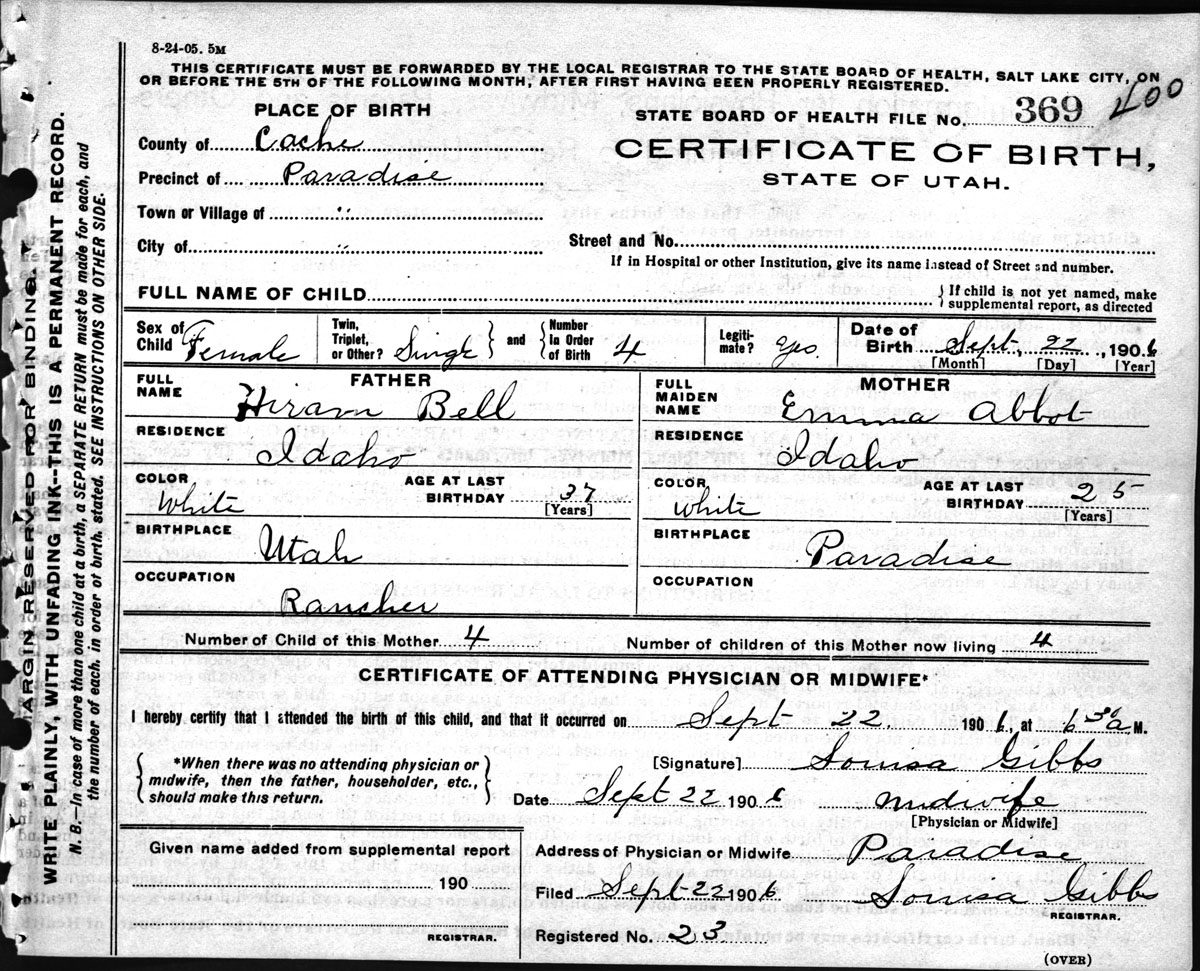 8-24-05. 5M
THIS CERTIFICATE MUST BE FORWARDED BY THE LOCAL REGISTRAR TO THE STATE BOARD OF HEALTH, SALT LAKE CITY, ON
OR BEFORE THE 5TH OF THE FOLLOWING MONTH, AFTER FIRST HAVING BEEN PROPERLY REGISTERED.
PLACE OF BIRTH
STATE BOARD OF HEALTH FILE No. 369 400
County of Cache
CERTIFICATE OF BIRTH,
Precinct of Paradise
STATE OF UTAH.
Town or Village of "
City of "
Street and No.
If in Hospital or other Institution, give its name instead of Street and number.
FULL NAME OF CHILD
{ If child is not yet named, make
supplemental report, as directed
Sex of Child Female
Twin, Triplet, or Other? Single } and { Number In Order of Birth 4
Legiti-mate? Yes.
Date of Birth Sept, 22, 1906
[Month] [Day] [Year]
FATHER
FULL NAME Hiram Bell
RESIDENCE Idaho
COLOR White
AGE AT LAST BIRTHDAY 37
[Years]
BIRTHPLACE Utah
OCCUPATION Rancher
MOTHER
FULL MAIDEN NAME Emma Abbot
RESIDENCE Idaho
COLOR White
AGE AT LAST BIRTHDAY 25
[Years]
BIRTHPLACE Paradise
OCCUPATION
Number of Child of this Mother 4
Number of children of this Mother now living 4
CERTIFICATE OF ATTENDING PHYSICIAN OR MIDWIFE*
I hereby certify that I attended the birth of this child, and that it occurred on Sept 22 1906, at 6 30 a M.
{ *When there was no attending physician or
midwife, then the father, householder, etc.,
should make this return. }
[Signature] Louisa Gibbs
Date Sept 22 1906 Midwife
[Physician or Midwife]
Given name added from supplemental report
190
REGISTRAR.
Address of Physician or Midwife Paradise
Filed Sept 22 1906 Louisa Gibbs
REGISTRAR.
Registered No. 23
(OVER)
MARGIN RESERVED FOR BINDING.
WRITE PLAINLY, WITH UNFADING INK—THIS IS A PERMANENT RECORD.
N. B.—In case of more than one child at a birth, a SEPARATE RETURN must be made for each, and
the number of each, in order of birth, stated. SEE INSTRUCTIONS ON OTHER SIDE.